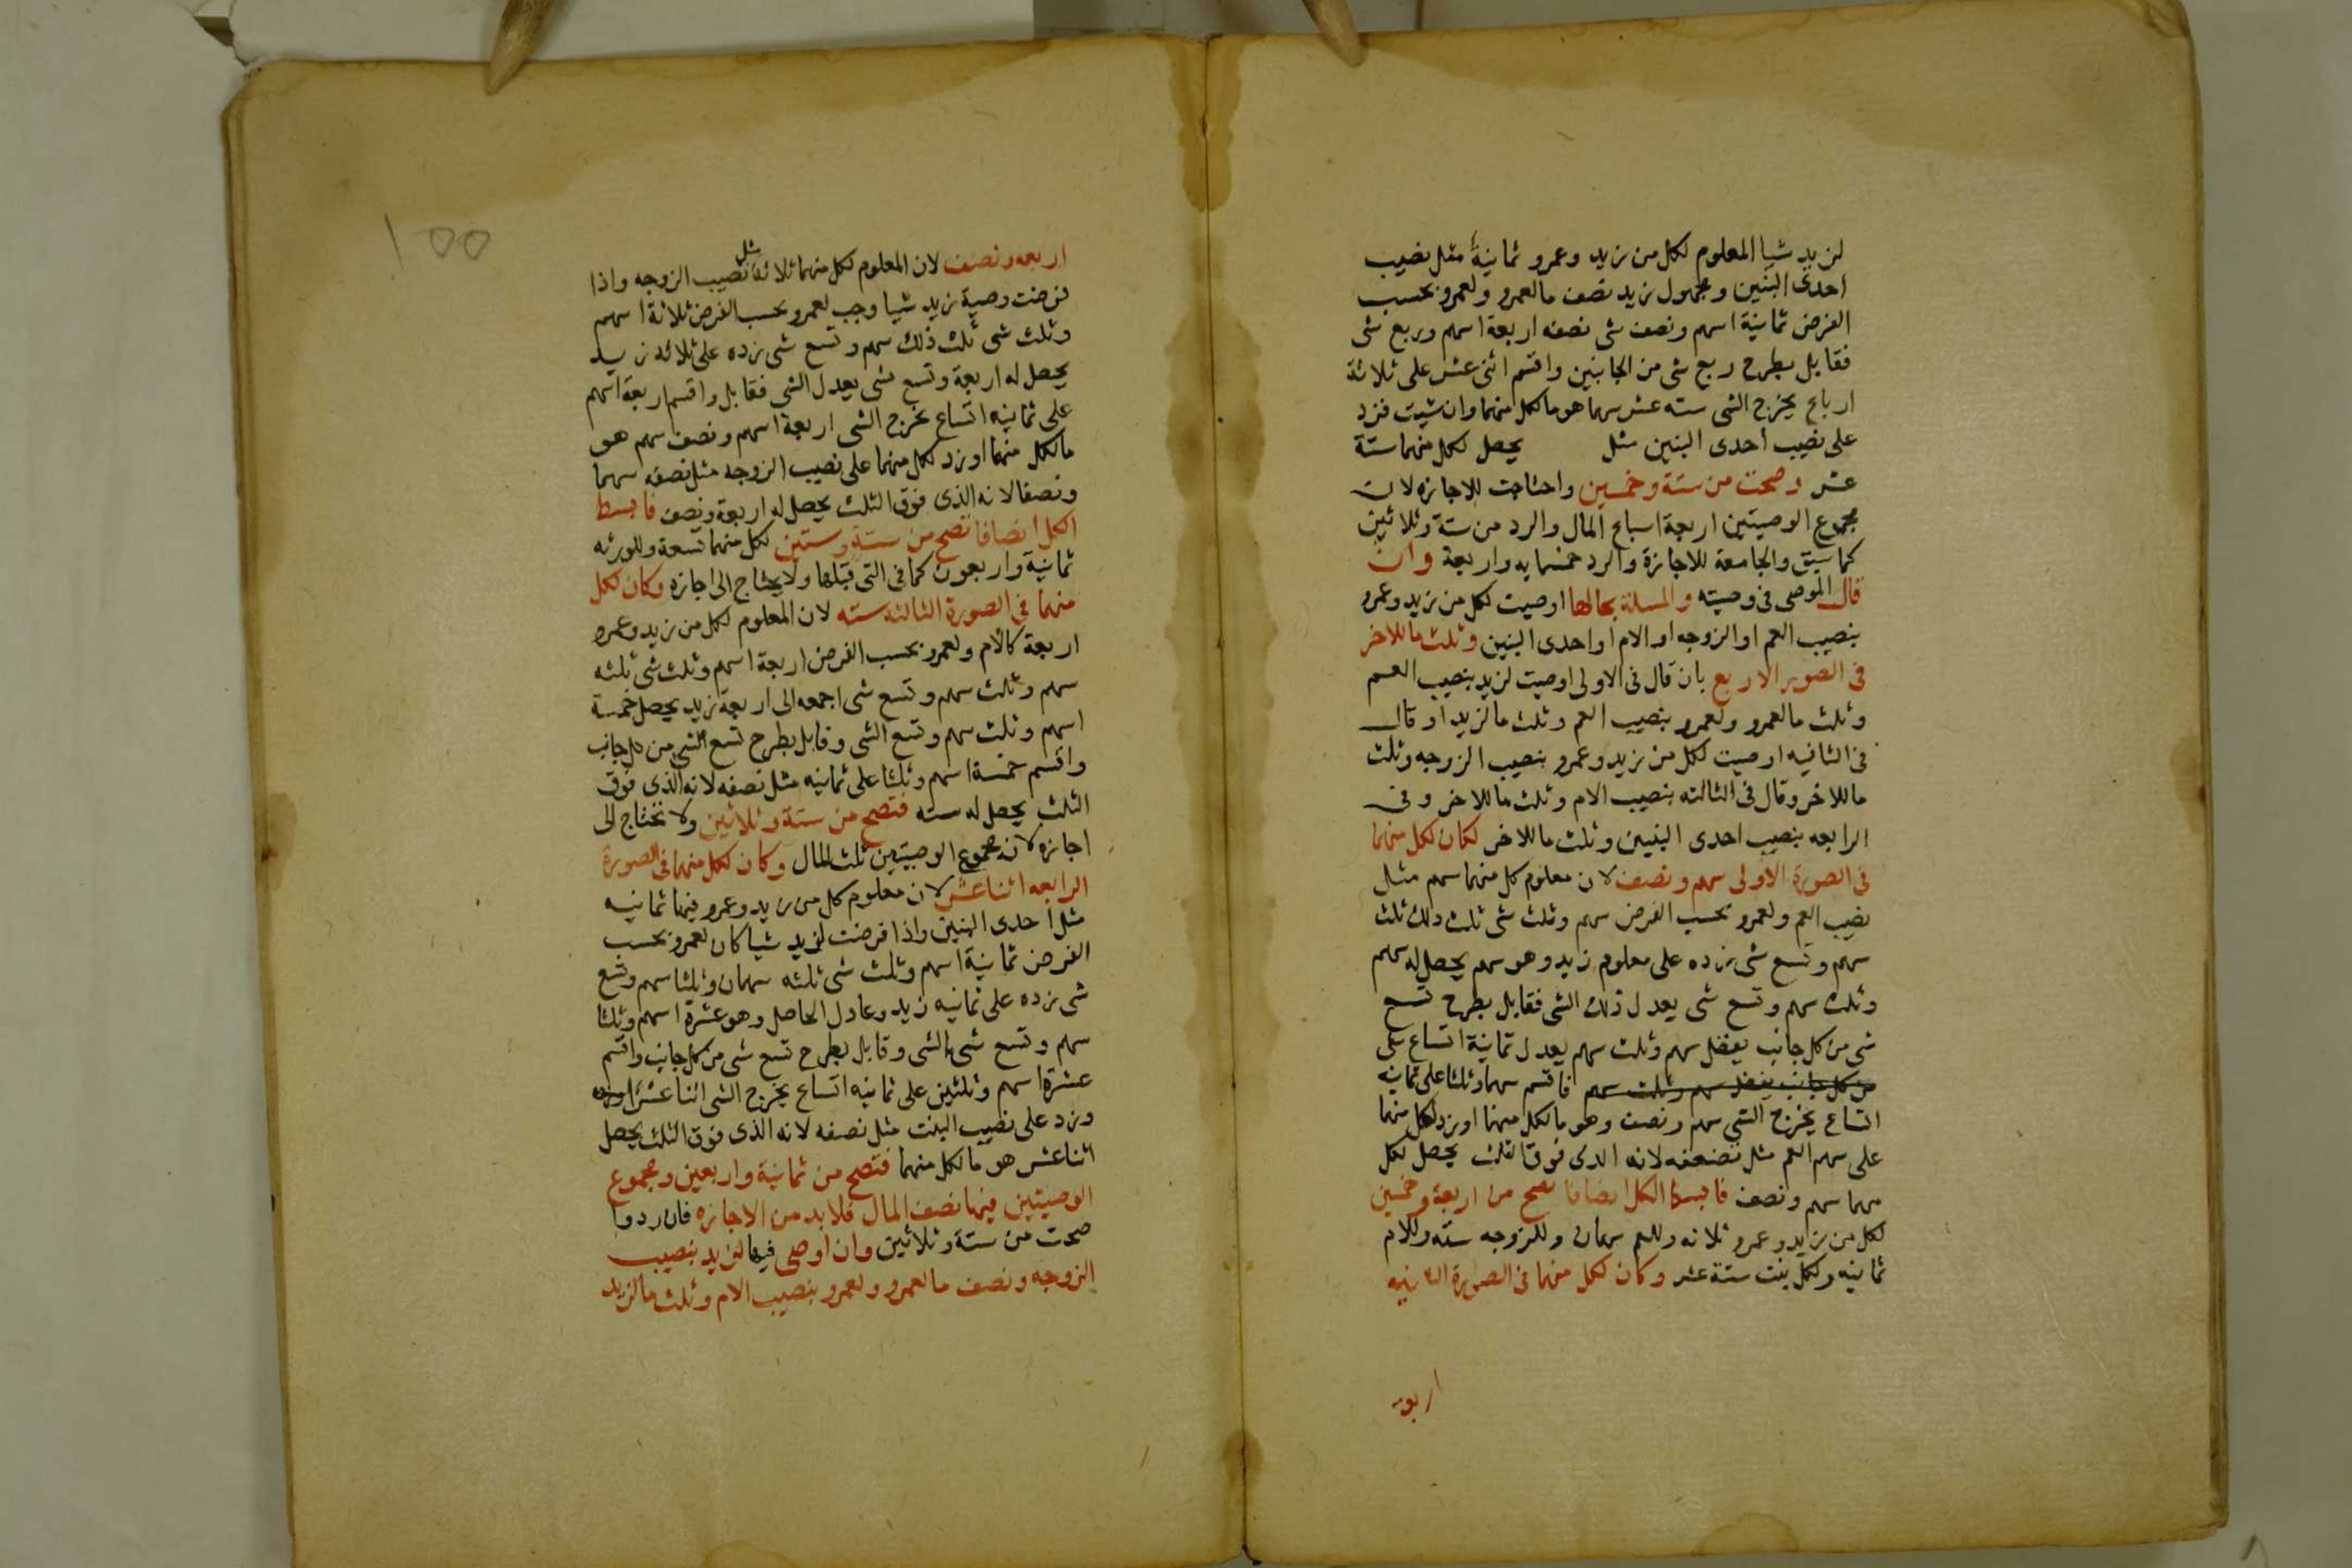 لزيد شيا المعلوم لكل من زيد وعمرو ثمانية مثل نصيب
احدى البنين ومجهول زيد نصف مالعمرو ولعمرو بحسب
الفرض ثمانية اسهم ونصف شى نصفه اربعة اسهم وربع شى
فقابل بطرح ربع شى من الجانبين واقسم اثنى عشر على ثلاثة
ارباع يخرج الشى سته عشر سهما هو ما لكل منهما وان شيت فزد
على نصيب احدى البنين مثل يحصل لكل منهما ستة
عشر وصحت من ستة وخمسين واحتاجت للاجازه لان
مجموع الوصيتين اربعة اسباع المال والرد من ستة وثلاثين
كما سبق والجامعة للاجازة والرد خمسمايه واربعة وان
قال الموصى فى وصيته والمسلة بحالها اوصيت لكل من زيد وعمرو
بنصيب العم او الزوجه او الام او احدى البنين وثلث ماللاخر
فى الصور الاربع بان قال فى الاولى اوصيت لزيد بنصيب العم
وثلث مالعمرو ولعمرو بنصيب العم وثلث مالزيد او قال
فى الثانيه اوصيت لكل من زيد وعمرو بنصيب الزوجه وثلث
ماللاخر وقال فى الثالثه بنصيب الام وثلث ماللاخر وفى
الرابعه بنصيب احدى البنين وثلث ماللاخر لكان لكل منهما
فى الصورة الاولى سهم ونصف لان معلوم كل منهما سهم مثل
نصيب العم ولعمرو بحسب الفرض سهم وثلث شى ثلث ذلك ثلث
سهم وتسع شى زده على معلوم زيد وهو سهم يحصل له سهم
وثلث سهم وتسع شى يعدل ذلك الشى فقابل بطرح تسع
شى من كل جانب يفضل سهم وثلث سهم يعدل ثمانية اتساع شى
من كل جانب يفضل سهم وثلث سهم فاقسم سهما وثلثا على ثمانيه
اتساع يخرج الشى سهم ونصف وهو مالكل منهما او زد لكل منهما
على سهم العم مثل نصفه لانه الذى فوق الثلث يحصل لكل
منهما سهم ونصف فابسط الكل انصافا تصح من اربعة وخمسين
لكل من زيد وعمرو ثلاثه وللعم سهمان وللزوجه سته وللام
ثمانيه ولكل بنت ستة عشر وكان لكل منهما فى الصورة الثانيه
اربعه
١٥٥
اربعه ونصف لان المعلوم لكل منهما ثلاثة مثل نصيب الزوجه واذا
فرضت وصية زيد شيا وجب لعمرو بحسب الفرض ثلاثة اسهم
وثلث شى ثلث ذلك سهم وتسع شى زده على ثلاثه زيد
يحصل له اربعة وتسع شى يعدل الشى فقابل واقسم اربعة اسهم
على ثمانيه اتساع يخرج الشى اربعة اسهم ونصف سهم هو
مالكل منهما او زد لكل منهما على نصيب الزوجه مثل نصفه سهما
ونصفا لانه الذى فوق الثلث يحصل له اربعة ونصف فابسط
الكل انصافا تصح من ستة وستين لكل منهما تسعة وللورثه
ثمانية واربعون كما فى التى قبلها ولا يحتاج الى اجازه وكان لكل
منهما فى الصورة الثالثه سته لان المعلوم لكل من زيد وعمرو
اربعة كالام ولعمرو بحسب الفرض اربعة اسهم وثلث شى ثلثه
سهم وثلث سهم وتسع شى اجمعه الى اربعة زيد يحصل خمسة
اسهم وثلث سهم وتسع الشى وقابل بطرح تسع الشى من كل جانب
واقسم خمسة اسهم وثلثا على ثمانيه مثل نصفه لانه الذى فوق
الثلث يحصل له سته فتصح من ستة وثلاثين ولا تحتاج الى
اجازه لان مجموع الوصيتين ثلث المال وكان لكل منهما فى الصورة
الرابعه اثنا عشر لان معلوم كل من زيد وعمرو فيها ثمانيه
مثل احدى البنين واذا فرضت لزيد شيا كان لعمرو بحسب
الفرض ثمانية اسهم وثلث شى ثلثه سهمان وثلثا سهم وتسع
شى زده على ثمانيه زيد وعادل الحاصل وهو عشرة اسهم وثلثا
سهم وتسع شى بالشى وقابل بطرح تسع شى من كل جانب واقسم
عشرة اسهم وثلثين على ثمانيه اتساع يخرج الشى اثنا عشر
وزد على نصيب البنت مثل نصفه لانه الذى فوق الثلث يحصل
اثنا عشر هو ما لكل منهما فتصح من ثمانية واربعين ومجموع
الوصيتين فيها نصف المال فلا بد من الاجازه فان ردوا
صحت من ستة وثلاثين وان اوصى فيها لزيد بنصيب
الزوجه ونصف مالعمرو ولعمرو بنصيب الام وثلث مالزيد